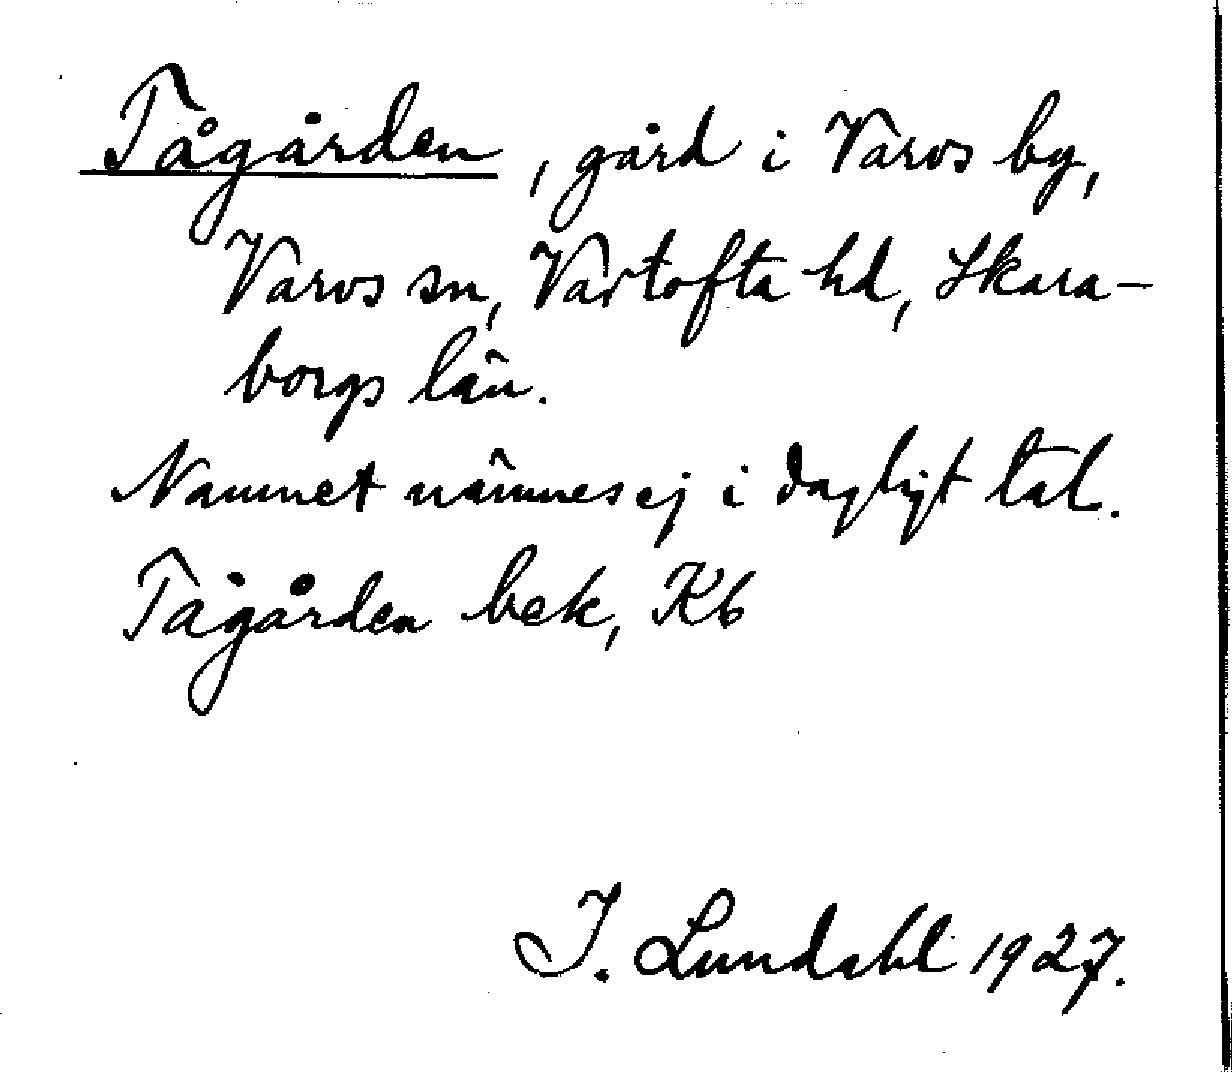 Tågården, gård i Varvs by,
Varvs sn, Vartofta hd, Skara-
borgs län.
Namnet nämnes ej i dagligt tal.
Tågården bek, Kb
I. Lundahl 1927.